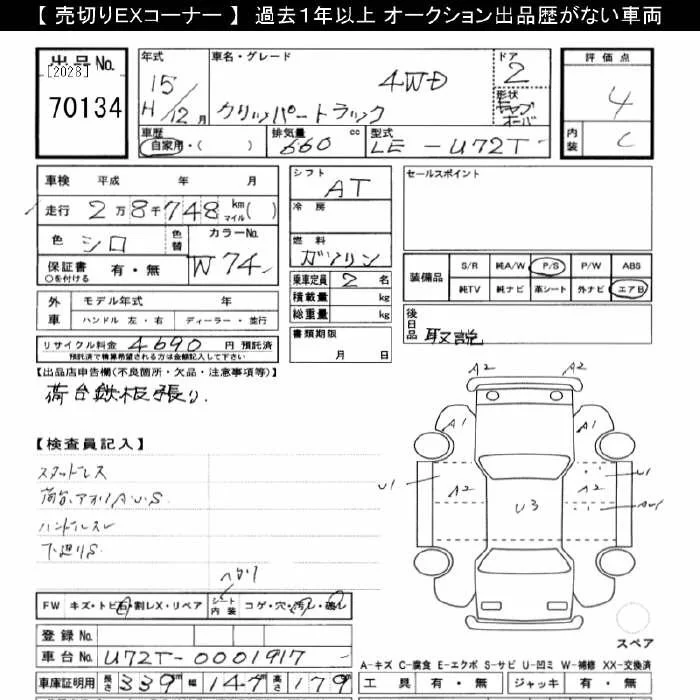 【 売切りEXコーナー 】 過去1年以上 オークション出品歴がない車両
出品No.
[2028]
70134
年式
15/
H /12月
車名・グレード
4WD
クリッパートラック
ドア
2
形状
キャブオーバ
評価点
4
内装
C
車歴
自家用・( )
排気量
660 cc
型式
LE-U72T
車検 平成 年 月
走行 2万8千748 km マイル( )
色 シロ
色替
カラーNo.
W74
保証書 有・無
○を付ける
外車
モデル年式 年
ハンドル 左・右 ディーラー・並行
リサイクル料金 4690円 預託済
預託済で精算希望される方は金額記入して下さい
シフト
AT
冷房
燃料
ガソリン
乗車定員 2 名
積載量 kg
総重量 kg
書類期限
月 日
セールスポイント
装備品
S/R 純A/W P/S P/W ABS
純TV 純ナビ 革シート 外ナビ エアB
後日品
取説
【出品店申告欄(不良箇所・欠品・注意事項等)】
荷台鉄板張り.
【検査員記入】
スタッドレス
荷台.アオリA.U.S.
ハンドルスレ
下廻りS
A2 A2
A1 A1
U1 A2 U3 A2 U1
ヘタリ
FW キズ・トビ石・割レX・リペア
シート内装 コゲ・穴・汚レ・破レ
登録No.
車台No. U72T-0001917
車庫証明用 長さ 339 幅 147 高さ 179
スペア
A-キズ C-腐食 E-エクボ S-サビ U-凹ミ W-補修 XX-交換済
工具 有・無 ジャッキ 有・無